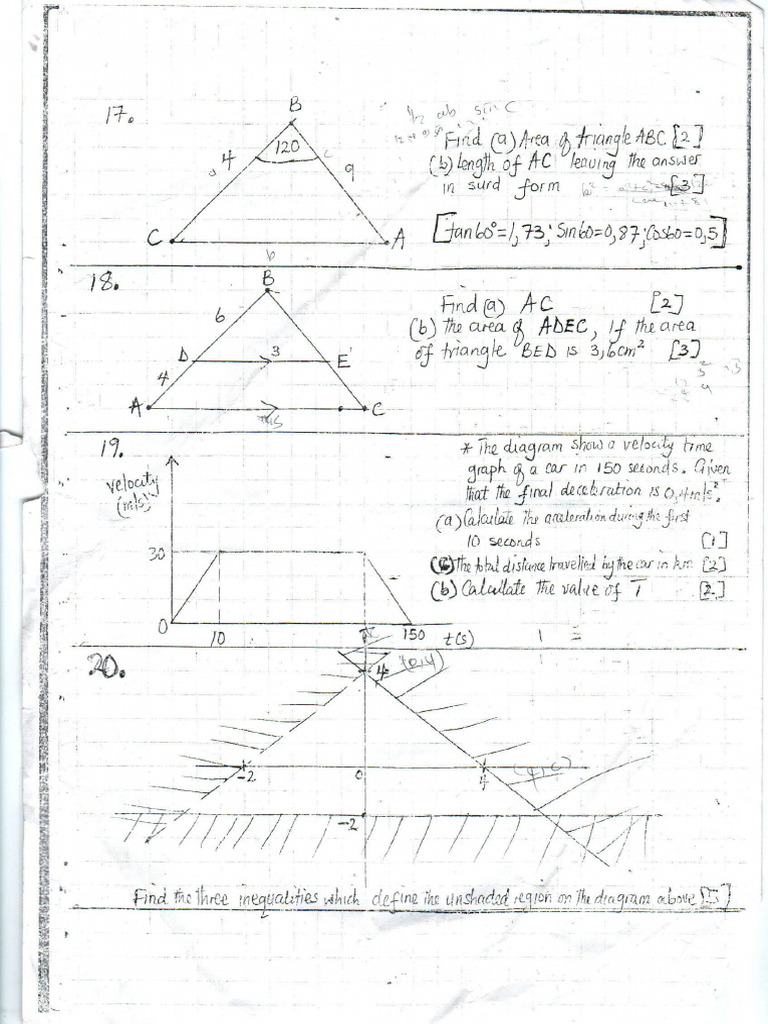 17.
½ ab sin C
B
120
4
9
c
C
A
b
Find (a) Area of triangle ABC [2]
(b) Length of AC leaving the answer
in surd form [3]
[tan60°=1,73; Sin60=0,87; Cos60=0,5]
18.
B
6
D
3
E
4
A
C
Find (a) AC [2]
(b) the area of ADEC, if the area
of triangle BED is 3,6cm² [3]
19.
velocity
(m/s)
30
0
10
T
150
t(s)
* The diagram show a velocity time
graph of a car in 150 seconds. Given
that the final deceleration is 0,4m/s²
(a) Calculate the acceleration during the first
10 seconds [1]
(c) The total distance travelled by the car in km [2]
(b) Calculate the value of T [2]
20.
4
(0,4)
-2
0
4
-2
Find the three inequalities which define the unshaded region on the diagram above [5]